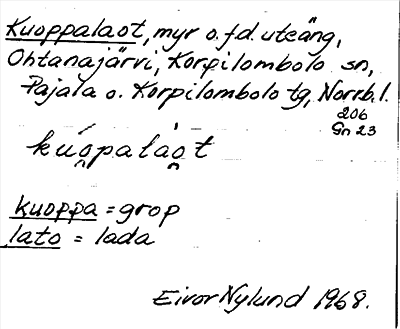 Kuoppalaot, myr o. f.d. uteäng,
Ohtanajärvi, Korpilombolo sn,
Pajala o. Korpilombolo tg, Norrb. l.
206
Gn 23
kúo̯palȧo̯t
kuoppa = grop
lato = lada
Eivor Nylund 1968.